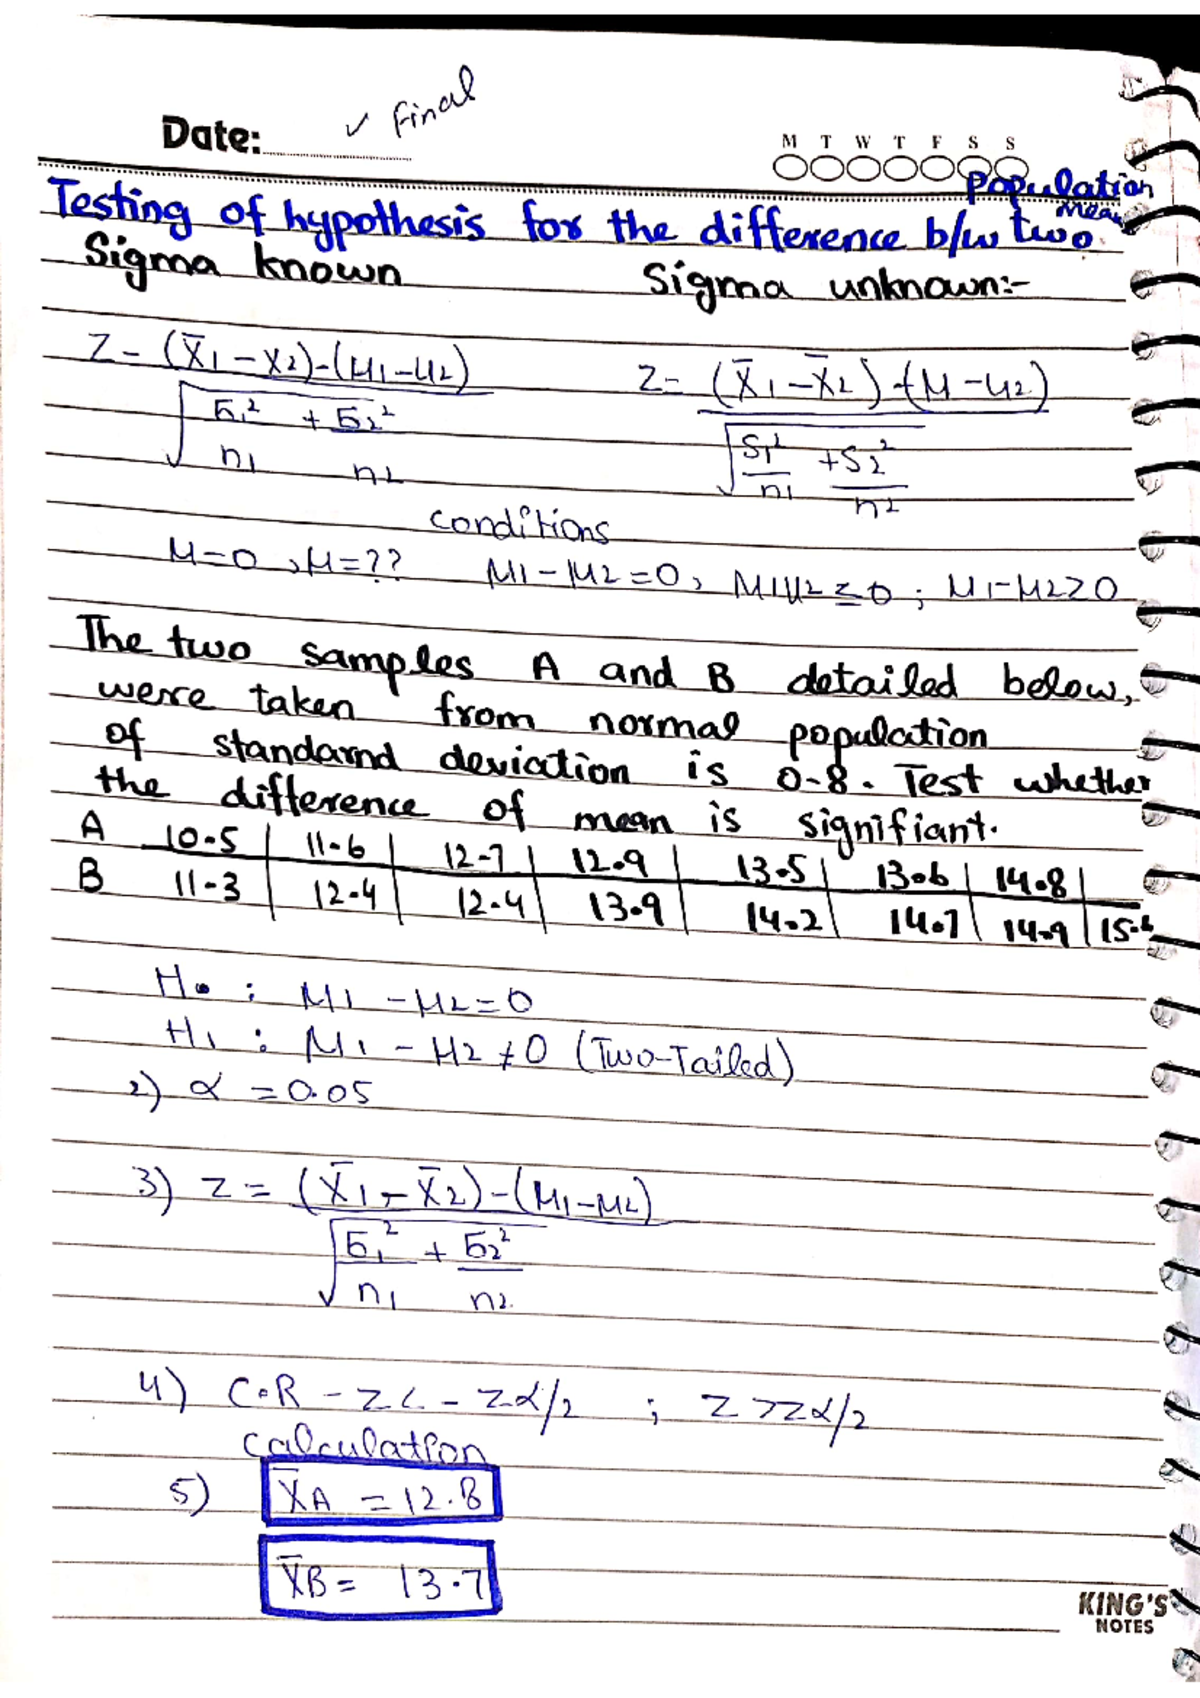 ✓ Final
Date:
M T W T F S S
Population
mean
Testing of hypothesis for the difference b/w two
Sigma known Sigma unknown:-
Z = (X̄1 - X2) - (μ1 - μ2) Z = (X̄1 - X̄2) - (μ - μ2)
√ σ1² + σ2² √ S1² + S2²
n1 n2 n1 n2
conditions
μ=0 , μ=?? μ1 - μ2 = 0, μ1 μ2 ≤ 0 ; μ1 - μ2 ≥ 0
The two samples A and B detailed below,
were taken from normal population
of standarnd deviation is 0.8. Test whether
the difference of mean is signifiant.
A 10.5 | 11.6 | 12.7 | 12.9 | 13.5 | 13.6 | 14.8 |
B 11.3 | 12.4 | 12.4 | 13.9 | 14.2 | 14.7 | 14.9 |
H0 : μ1 - μ2 = 0
H1 : μ1 - μ2 ≠ 0 (Two-Tailed)
2) α = 0.05
3) Z = (X̄1 - X̄2) - (μ1 - μ2)
√ σ1² + σ2²
n1 n2
4) C.R - Z < - Zα/2 ; Z > Zα/2
calculation
5) X̄A = 12.8
X̄B = 13.7
KING'S
NOTES